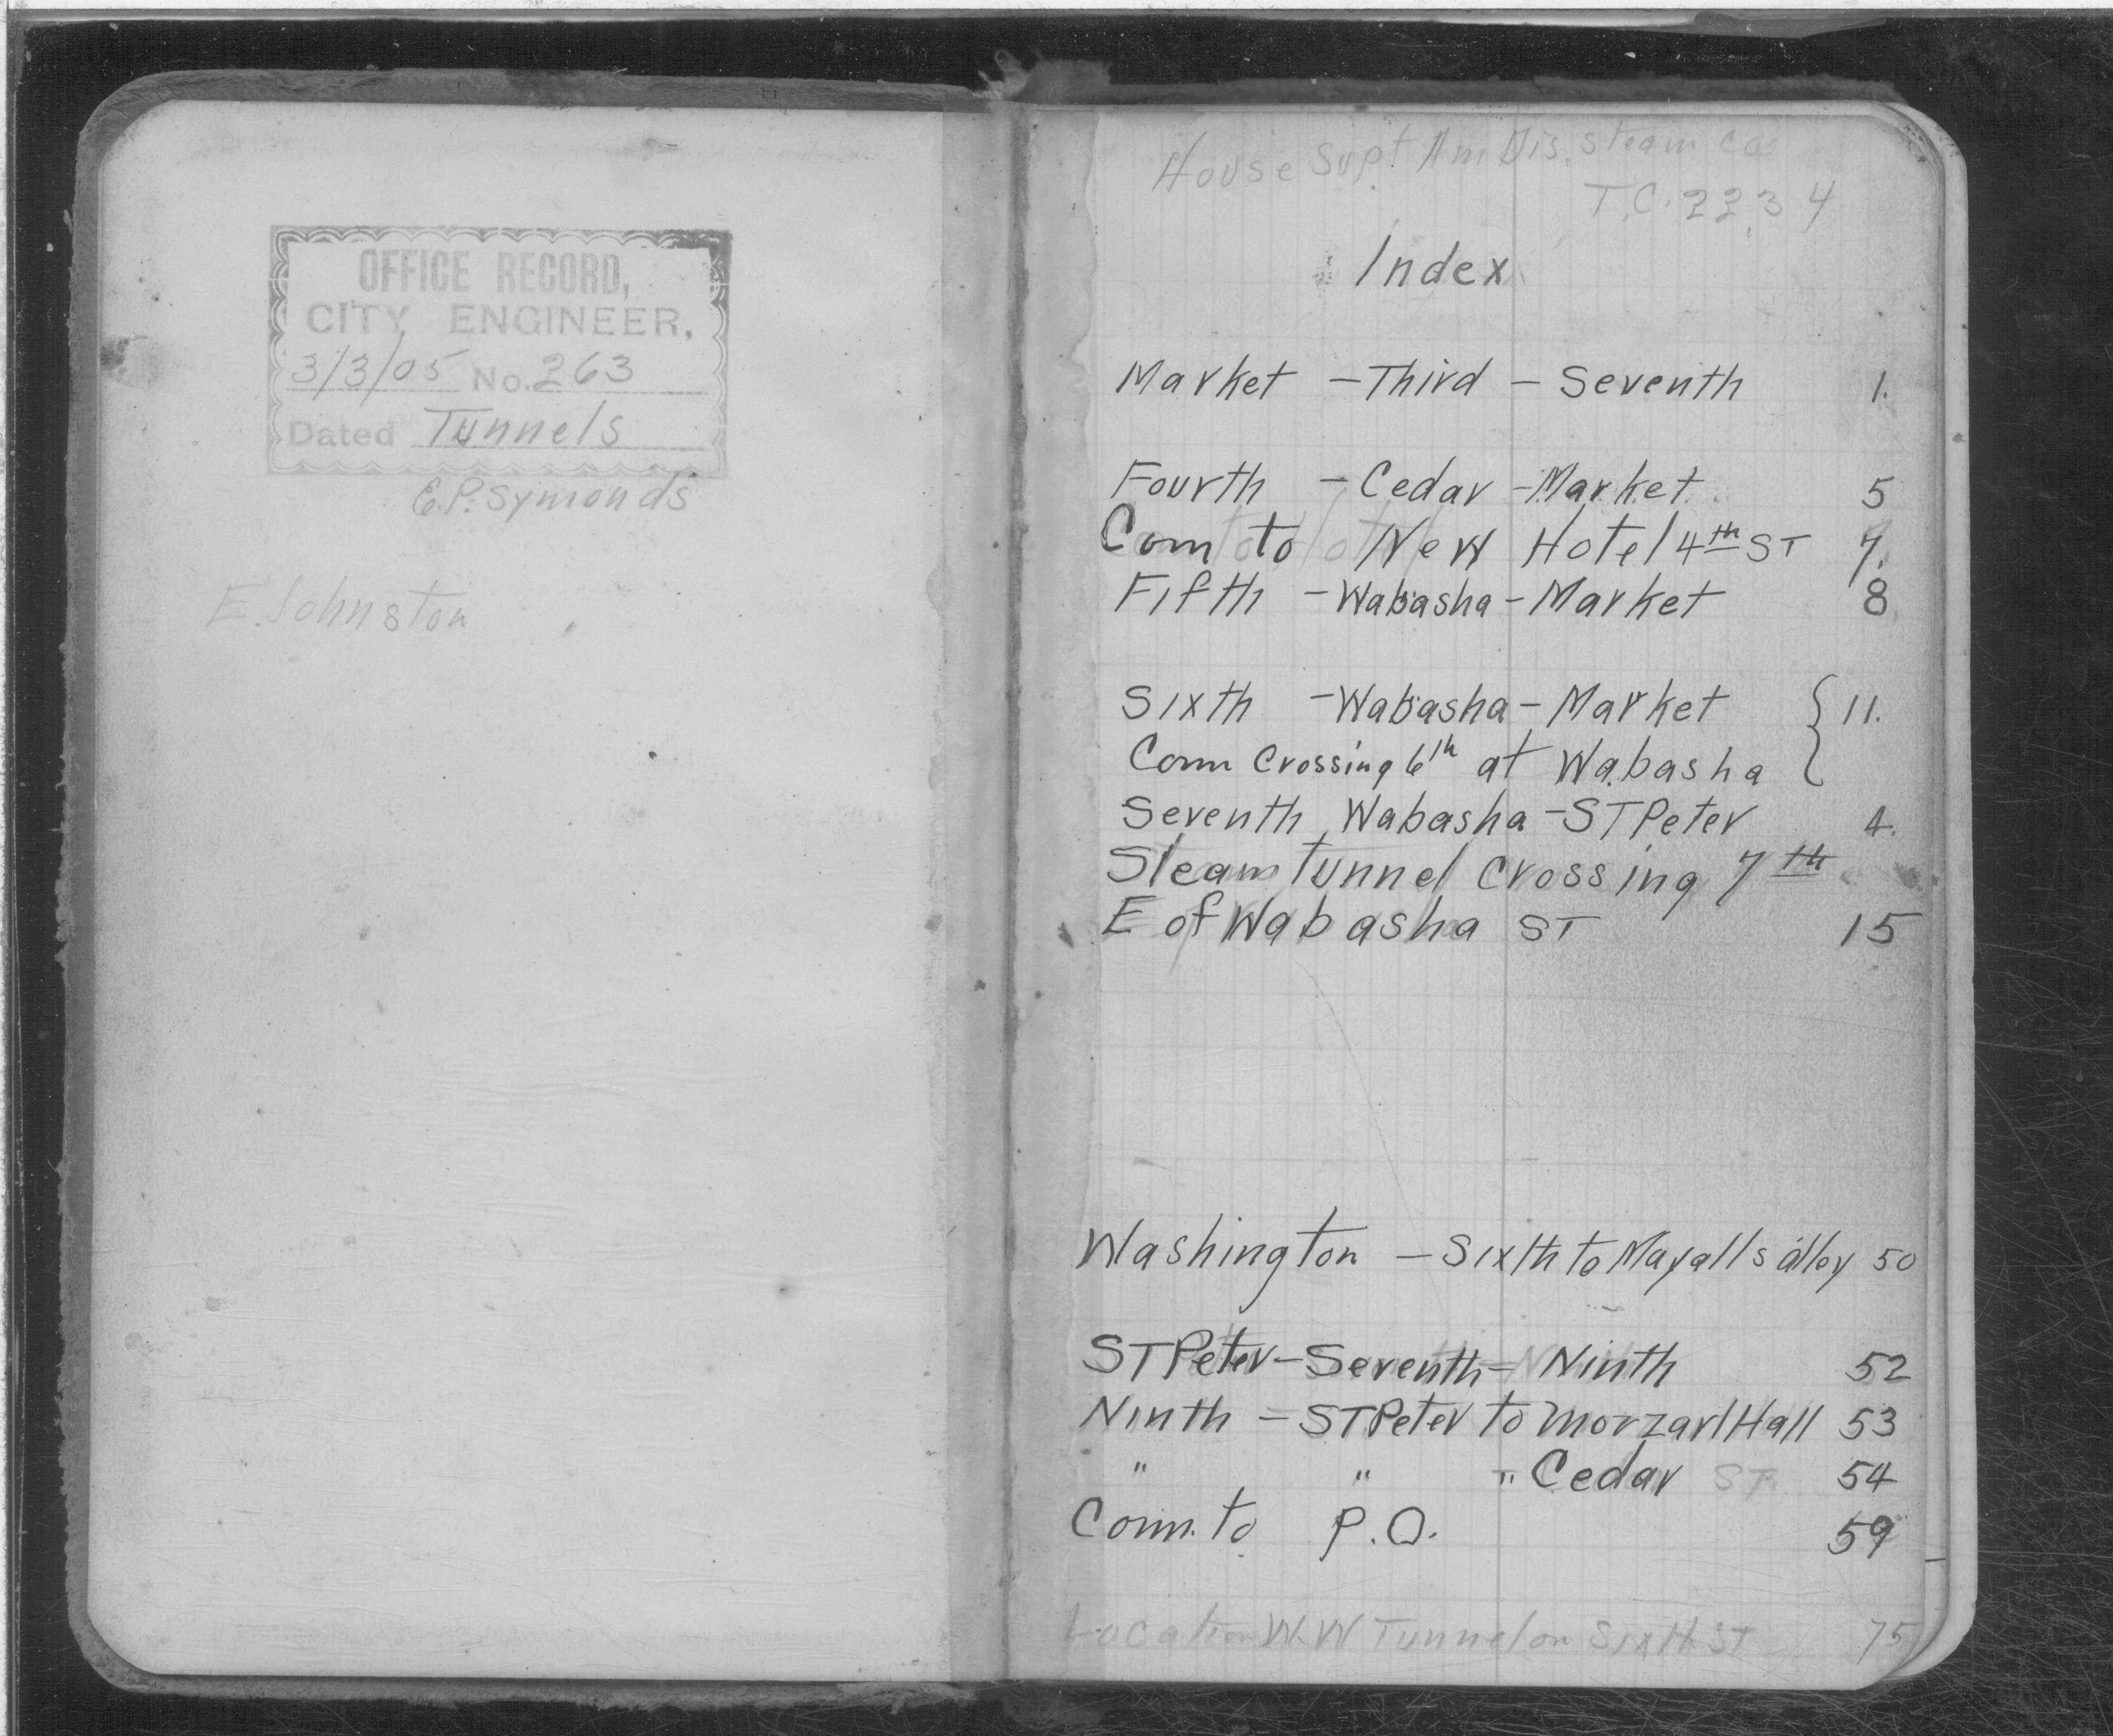 OFFICE RECORD,
CITY ENGINEER,
3/3/05 No. 263
Dated Tunnels
E.P. Symonds
E. Johnston
House Supt Am Dis. Steam Co.
T.C. 2234
Index
Market - Third - Seventh 1.
Fourth - Cedar - Market 5
Conn to New Hotel 4th ST 7.
Fifth - Wabasha - Market 8
Sixth - Wabasha - Market { 11.
Conn Crossing 6th at Wabasha
Seventh Wabasha - ST Peter 4.
Steam Tunnel crossing 7th
E of Wabasha ST 15
Washington - Sixth to Mayalls alley 50
ST Peter - Seventh - Ninth 52
Ninth - ST Peter to Morzart Hall 53
" " " Cedar ST 54
Conn. to P.O. 59
Location W.W Tunnel on Sixth ST 75